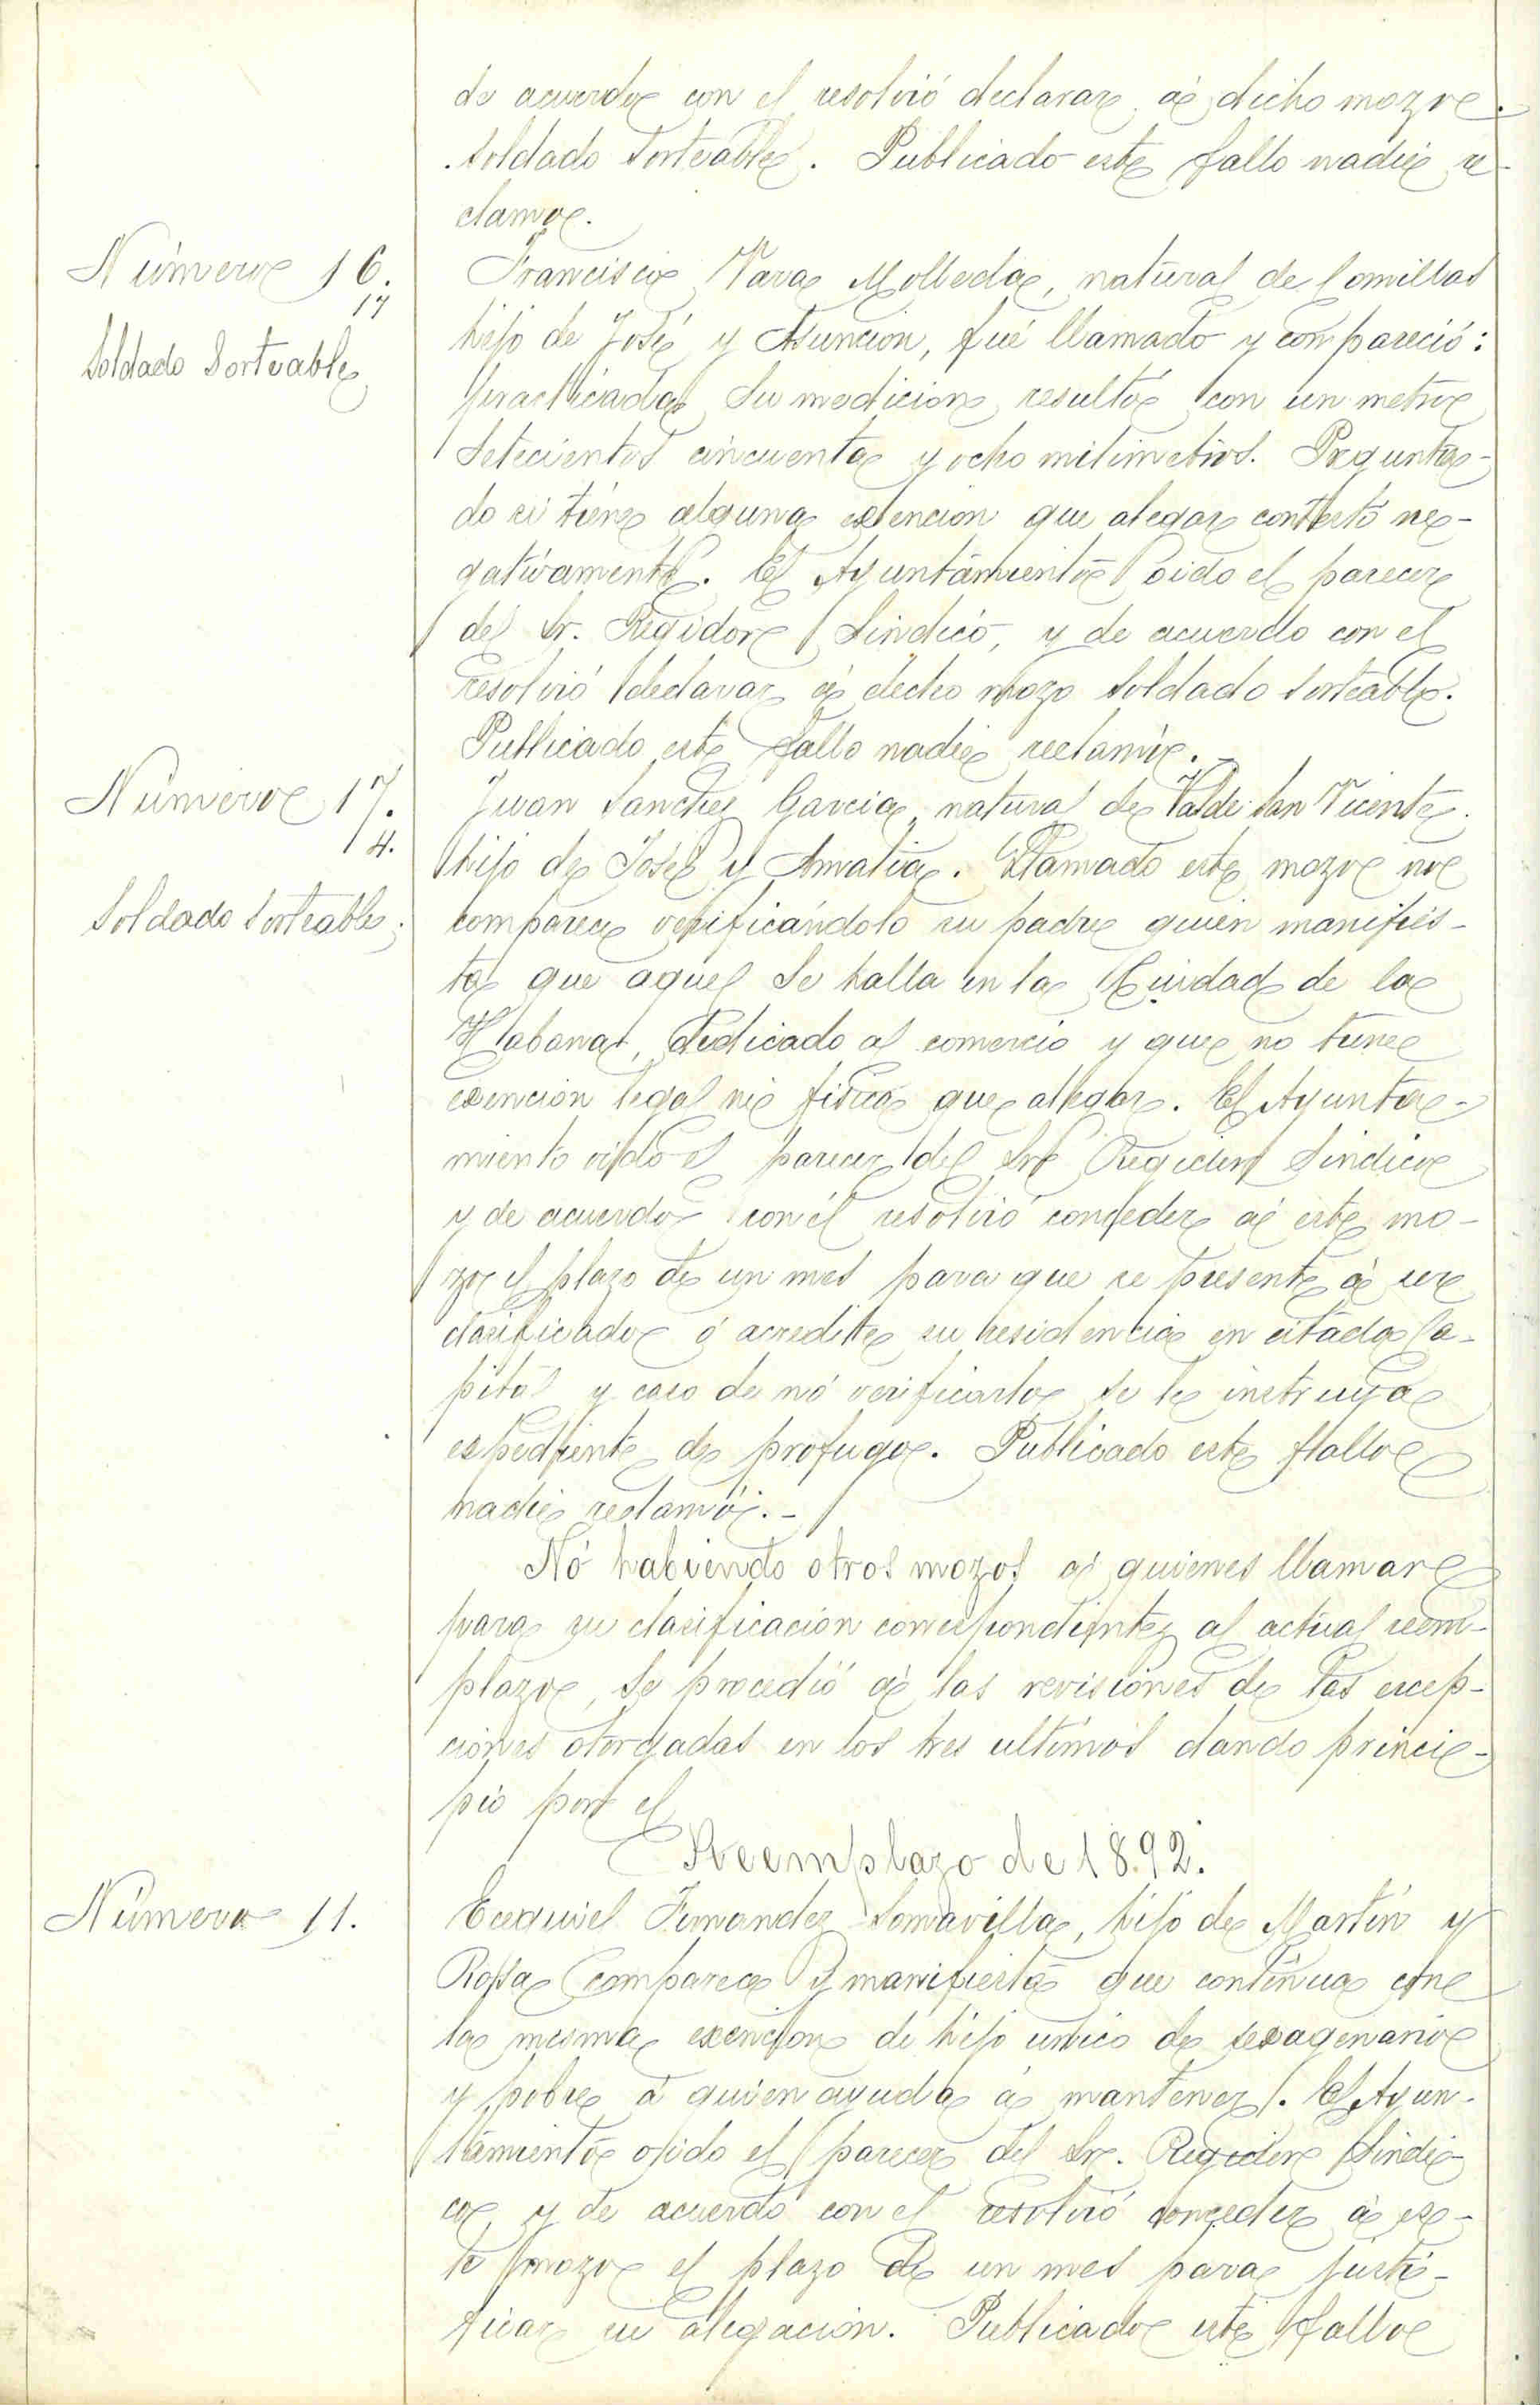 de acuerdo con el resolvió declarar á dicho mozo
soldado sorteable. Publicado este fallo nadie re-
clamo.
Número 16.
17
Soldado Sorteable
Francisco Vara Molleda, natural de Lomillas
hijo de José y Asuncion, fué llamado y compareció:
practicada su medicion resultó con un metro
setecientos cincuenta y ocho milimetros. Pregunta-
do si tiene alguna esencion que alegar contestó ne-
gativamente. El Ayuntamiento oido el parecer
del Sr. Regidor Sindico, y de acuerdo con el
resolvió declarar á dicho mozo soldado sorteable.
Publicado este fallo nadie reclamó.
Número 17.
4.
Soldado Sorteable
Juan Sanchez Garcia, natural de Val de San Vicente.
hijo de José y Amalia. Llamado este mozo no
comparece verificándolo su padre quien manifies-
ta que aquel se halla en la Ciudad de la
Habana, dedicado al comercio y que no tiene
exencion legal ni fisica que alegar. El Ayunta-
miento oido el parecer del Sr. Regidor Sindico
y de acuerdo con él resolvió conceder á este mo-
zo el plazo de un mes para que se presente á ser
clasificado ó acredite su residencia en citada Ca-
pital y caso de nó verificarlo se le instruya
espediente de profugo. Publicado este fallo
nadie reclamó.-
Nó habiendo otros mozos á quienes llamar
para su clasificacion correspondiente al actual reem-
plazo, se procedió á las revisiones de las escep-
ciones otorgadas en los tres ultimos dando princi-
pio por el
Reemplazo de 1892.
Número 11.
Ecequiel Fernandez Somavilla, hijo de Martín y
Rosa comparece y manifiesta que continua con
la misma exencion de hijo unico de sexagenario
y pobre á quien ayuda á mantener. El Ayun-
tamiento oido el parecer del Sr. Regidor Sindi-
co y de acuerdo con el resolvió conceder á es-
te mozo el plazo de un mes para justi-
ficar su alegacion. Publicado este fallo